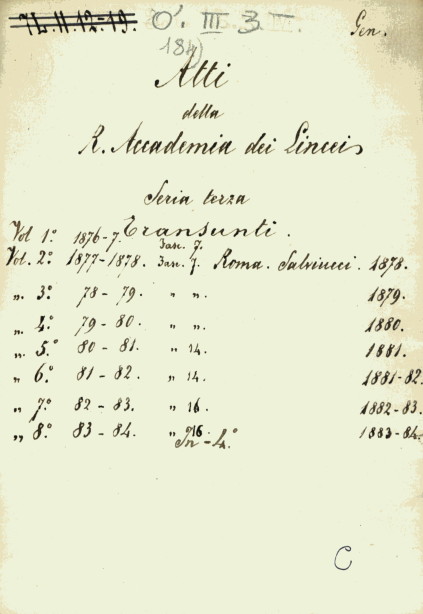 7L.II.12-19. O'. III. 3. Gen.
184)
Atti
della
R. Accademia dei Lincei
Seria terza
Transunti.
Vol 1.º 1876-7. Fasc. 7.
Vol. 2.º 1877-1878. Fasc. 7. Roma. Salviucci. 1878.
„ 3.º 78-79. „ „. 1879.
„ 4.º 79-80. „ „. 1880.
„ 5.º 80-81. „ 14. 1881.
„ 6.º 81-82. „ 14. 1881-82.
„ 7.º 82-83. „ 16. 1882-83.
„ 8.º 83-84. „ 16. 1883-84.
In-4.º
C